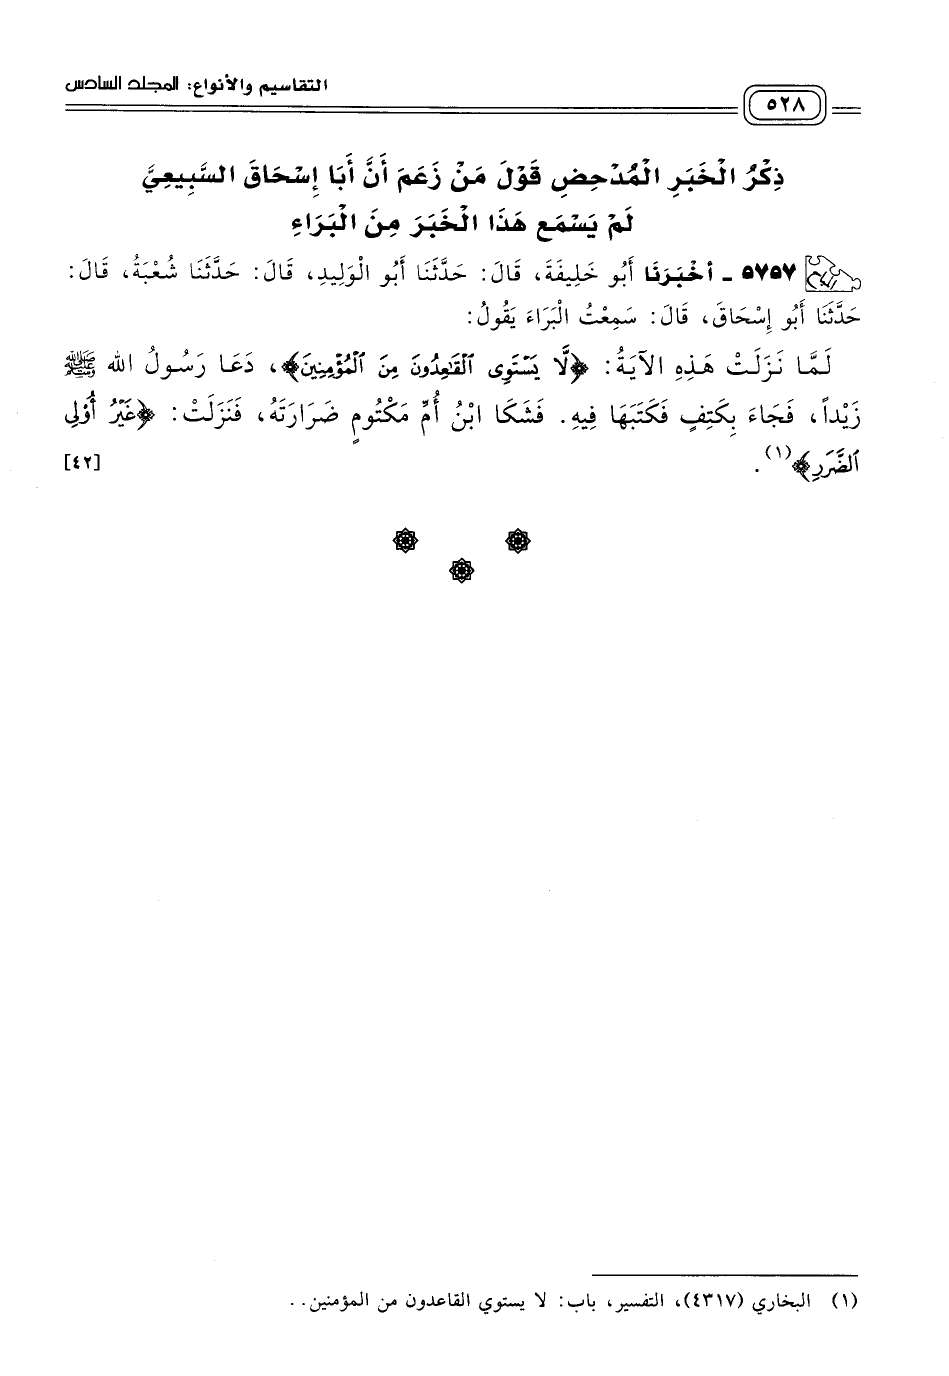 التقاسيم والأنواع: المجلد السادس
٥٢٨
ذِكْرُ الْخَبَرِ الْمُدْحِضِ قَوْلَ مَنْ زَعَمَ أَنَّ أَبَا إِسْحَاقَ السَّبِيعِيَّ
لَمْ يَسْمَعِ هَذَا الْخَبَرَ مِنَ الْبَرَاءِ
٥٧٥٧ - أَخْبَرَنَا أَبُو خَلِيفَةَ، قَالَ: حَدَّثَنَا أَبُو الْوَلِيدِ، قَالَ: حَدَّثَنَا شُعْبَةُ، قَالَ:
حَدَّثَنَا أَبُو إِسْحَاقَ، قَالَ: سَمِعْتُ الْبَرَاءَ يَقُولُ:
لَمَّا نَزَلَتْ هَذِهِ الآيَةُ: ﴿لَّا يَسْتَوِى ٱلْقَٰعِدُونَ مِنَ ٱلْمُؤْمِنِينَ﴾، دَعَا رَسُولُ الله ﷺ
زَيْداً، فَجَاءَ بِكَتِفٍ فَكَتَبَهَا فِيهِ. فَشَكَا ابْنُ أُمِّ مَكْتُومٍ ضَرَارَتَهُ، فَنَزَلَتْ: ﴿غَيْرُ أُوْلِى
ٱلضَّرَرِ﴾(١). [٤٢]
(١) البخاري (٤٣١٧)، التفسير، باب: لا يستوي القاعدون من المؤمنين..